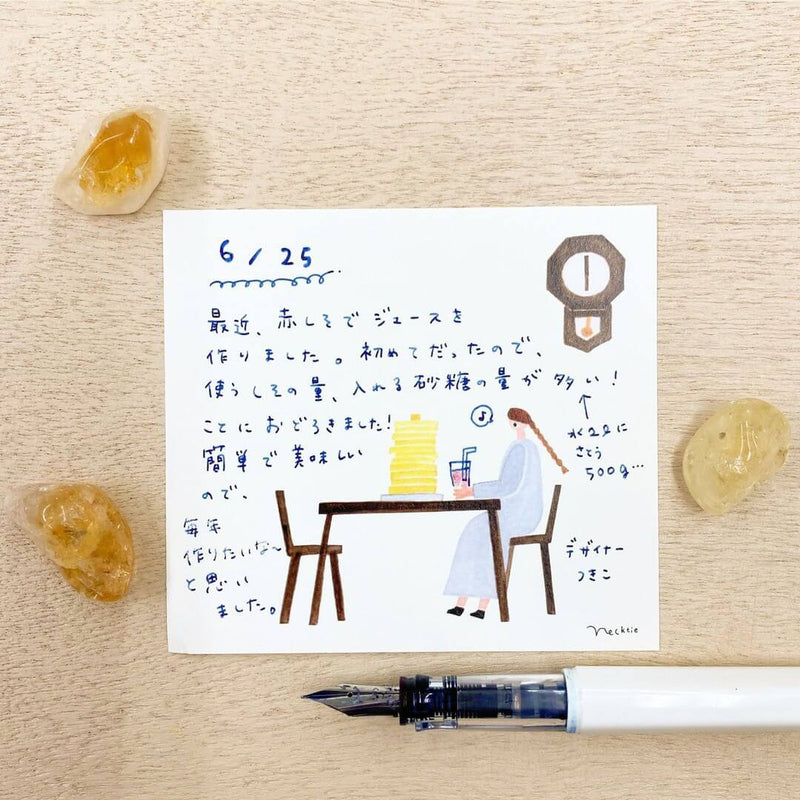 6/25
最近、赤しそでジュースを
作りました。初めてだったので、
使うしその量、入れる砂糖の量が多い！
ことにおどろきました！
簡単で美味しい
ので、
毎年
作りたいな～
と思い
ました。
水2ℓに
さとう
500g…
デザイナー
つきこ
necktie